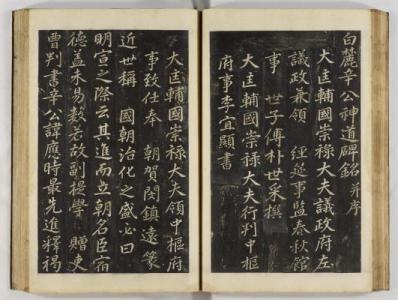 白麓辛公神道碑銘 并序
大匡輔國崇祿大夫議政府左
議政兼領 經筵事監春秋館
事 世子傅朴世采撰
大匡輔國崇祿大夫行判中樞
府事李宜顯書
大匡輔國崇祿大夫領中樞府
事致仕奉 朝賀閔鎮遠篆
近世稱 國朝治化之盛必曰
明宣之際云其進而立朝名臣宿
德蓋未易數若故副提學 贈吏
曹判書辛公諱應時最先進釋褐